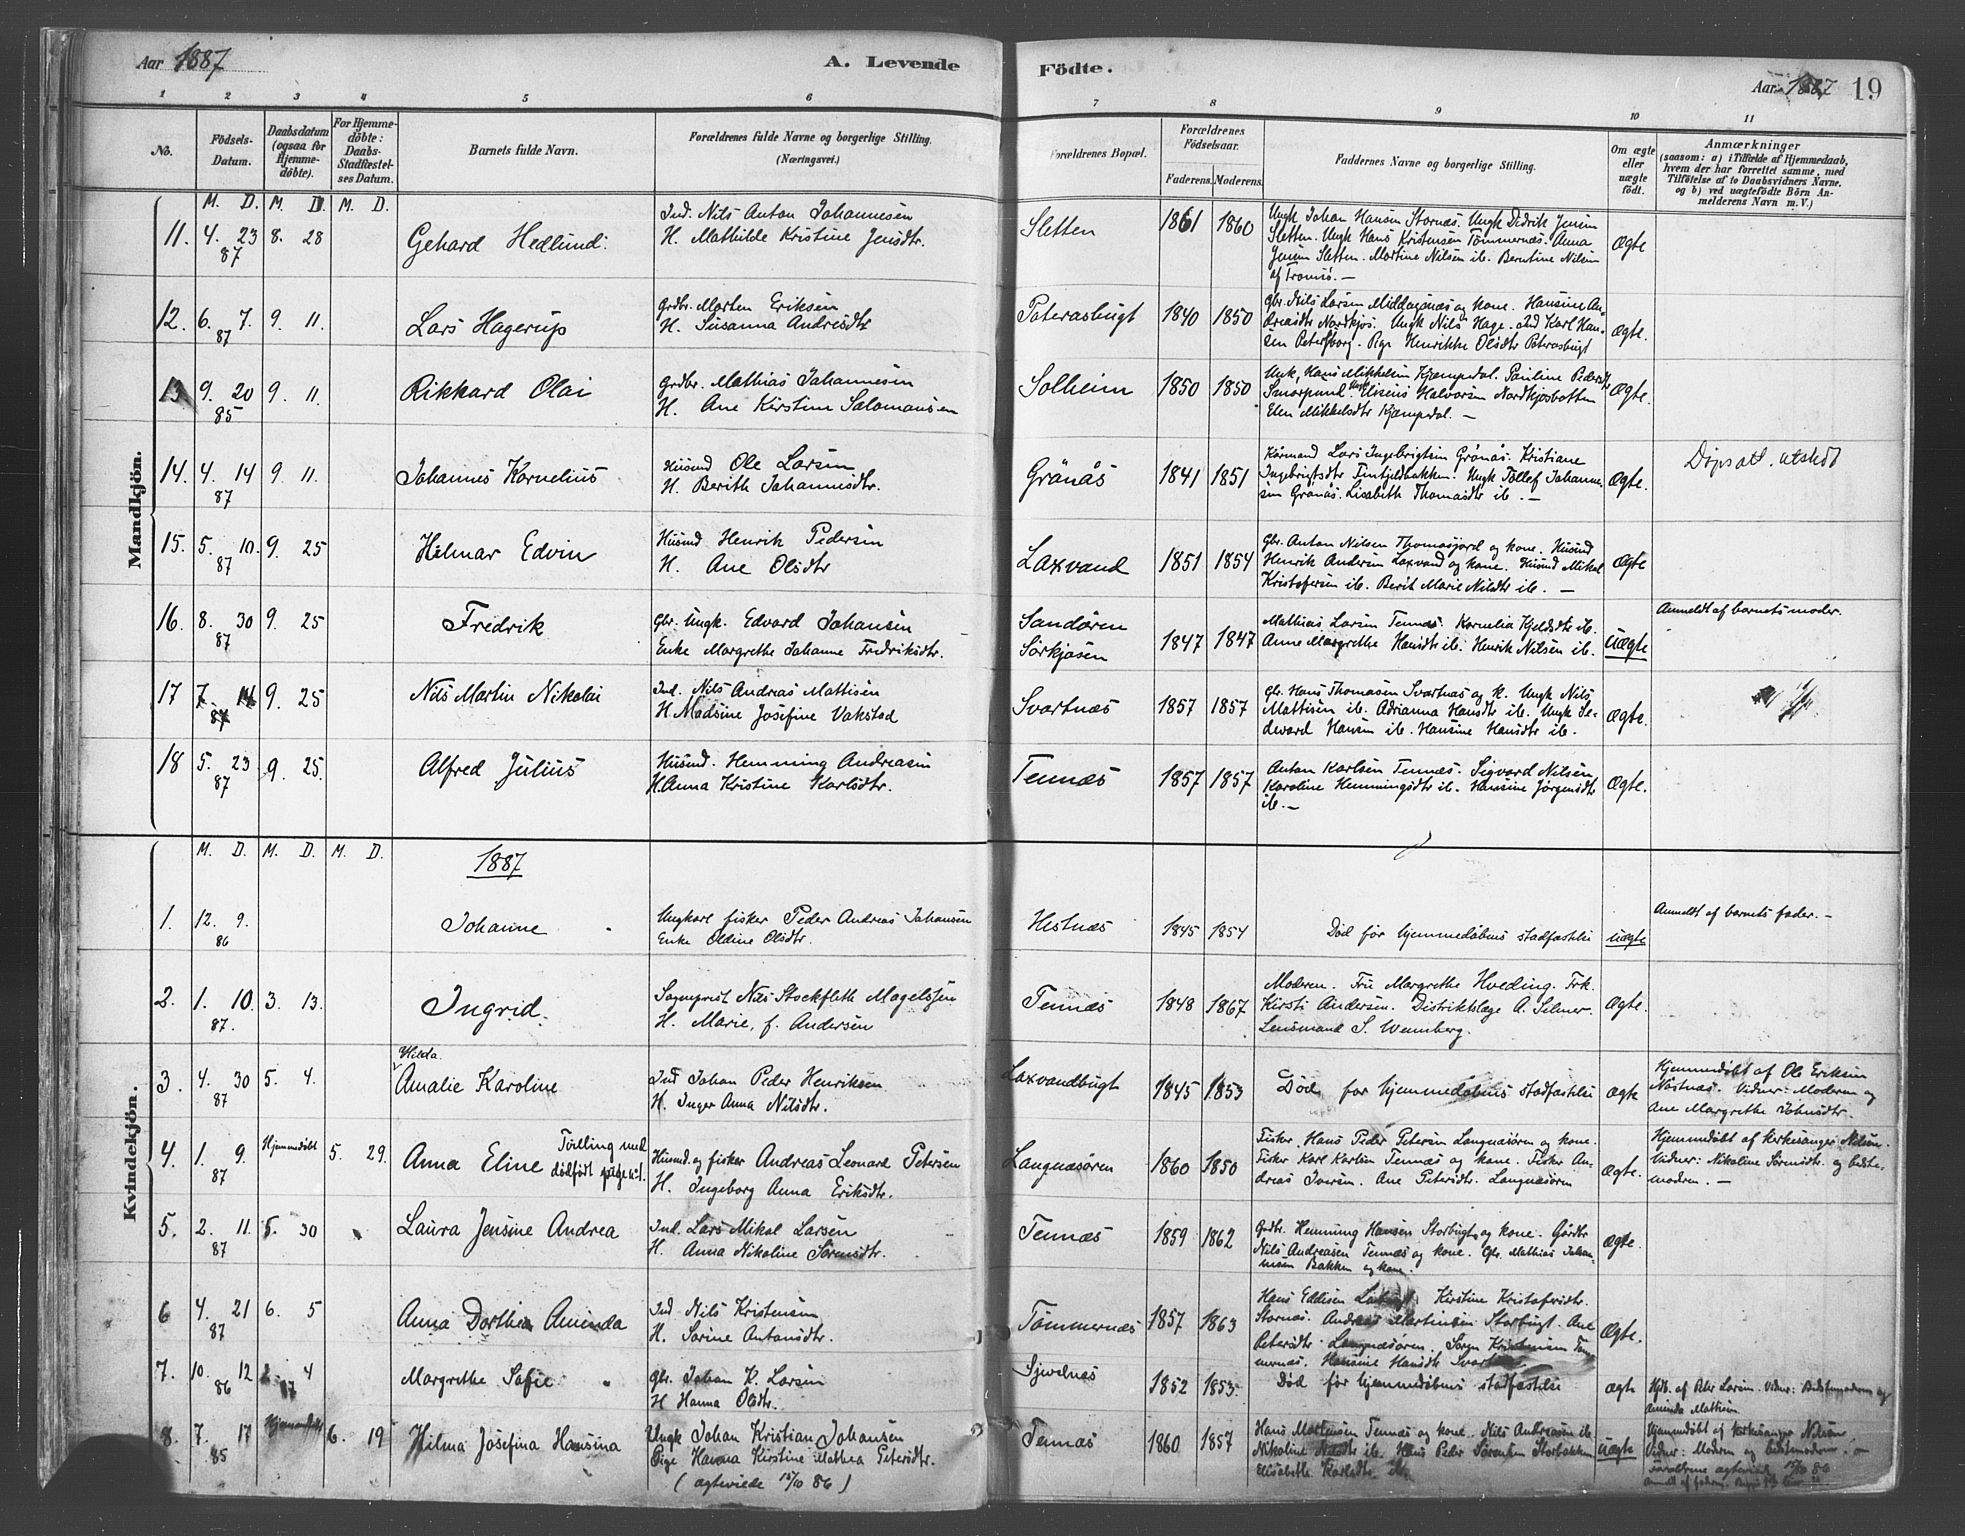 Aar 1887
A. Levende
Födte.
Aar 1887
19
1 2 3 4 5 6 7 8 9 10 11
No.
Födsels-Datum.
Daabsdatum (ogsaa for Hjemme-döbte).
For Hjemme-döbte: Daabs-Stadfæstel-ses Datum.
Barnets fulde Navn.
Forældrenes fulde Navne og borgerlige Stilling. (Næringsvei.)
Forældrenes Bopæl.
Forældrenes Födselsaar.
Faderens. Moderens.
Faddernes Navne og borgerlige Stilling.
Om ægte eller uægte födt.
Anmærkninger
(saasom: a) i Tilfælde af Hjemmedaab, hvem der har forrettet samme, med Tilföielse af to Daabsvidners Navne. og b) ved uægtefödte Börn An-melderens Navn m. V.)
Mandkjön.
M. D. M. D. M. D.
11. 4. 23 87 8. 28 Gehard Hedlund.
Ind. Nils Anton Johannesen
H. Mathilde Kristine Jensdtr.
Sletten 1861 1860
Ungk Johan Hansen Stornæs. Ungk Didrik Jensen
Sletten. Ungk Hans Kristensen Tömmernæs. Anna
Jensen Sletten. Martine Nilsen ib. Berntine Nilsen
af Tromsö. —
Ægte
12. 6. 7. 87 9. 11. Lars Hagerup
Grdbr. Morten Eriksen
H. Susanna Andreasdtr
Paterasbugt 1840 1850
Gbr. Nils Larsen Middagsnæs og kone. Hansine An-
dreasdtr Nordkjos. Ungk Nils Hage. Ind Karl Han-
sen Petersborg. Pige Henrikke Olsdtr Paterasbugt
Ægte.
13 9. 20 85 9. 11. Rikkard Olai
Grdbr. Mathias Johannesen
H. Ane Kirstine Salomonsen
Solheim 1850 1850
Ungk. Hans Mikkelsen Kjempedal. Pauline Pedersdtr
Halvorsen Nordkjosbotten
Elen Mikkelsdtr Kjæmpedal. —
Ægte.
14. 4. 14 87 9. 11. Johannes Kornelius
Husmd Ole Larsen
H. Berith Johannesdtr.
Grönås 1841 1851
Kårmand Lars Ingebrigtsen Grönås. Kristiane
Ingebrigtsdtr Fintjeldbakken. Ungk Tollef Johanne-
sen Grönås. Lisabeth Thomasdtr ib. —
Ægte.
Döpsatt. utstedt
15. 5. 10. 87 9. 25 Hilmar Edvin
Husmd Henrik Pedersen
H. Ane Olsdtr
Laxvand 1851 1854
Gbr. Anton Nilsen Thomasjord og kone. Husmd
Henrik Andersen Laxvand og kone. Husmd Mikal
Kristofersen ib. Berit Marie Nilsdtr ib. —
Ægte
16. 8. 30 87 9. 25 Fredrik
Gbr. Ungk. Edvard Johansen
Enke Margrethe Johanne Fredriksdtr.
Sandören
Sörkjosen 1847 1847
Mathias Larsen Tennæs. Kornelia Kjeldsdtr ib.
Anne Margrethe Hansdtr ib. Henrik Nilsen ib.
Uægte
Anmeldt af barnets moder.
17 7. 14 87 9. 25 Nils Martin Nikolai
Ind. Nils Andreas Mattisen
H. Madsine Josefine Vakstad
Svartnæs 1857 1857
Gbr. Hans Thomasen Svartnæs og k. Ungk Nils
Mattisen ib. Adrianna Hansdtr ib. Ungk Se-
devard Hansen ib. Hansine Hansdtr ib.
Ægte.
18 5. 23 87 9. 25. Alfred Julius
Husmd. Hemming Andreasen
H. Anna Kristine Karlsdtr.
Tennæs 1857 1857
Anton Karlsen Tennæs. Sigvard Nilsen
Karoline Hemmingsdtr ib. Hansine Jörgensdtr
ib. —
Ægte.
Kvindekjön.
M. D. M. D. M. D.
1887
1. 12. 9. 86 Johanne
Ungkarl fisker Peder Andreas Johansen
Enke Oldine Olsdtr.
Hestnæs 1845 1854
Död för hjemmedåbens stadfæstelse
uægte
Anmeldt af barnets fader. —
2. 1. 10. 87. 3. 13. Ingrid.
Sogneprest Nils Stockfleth Magelssen
H. Marie, f. Andersen
Tennæs 1848 1867
Moderen. Fru Margrethe Hveding. Frk.
Kirsti Andersen. Distriktslæge A. Selmer.
Lensmand S. Wennberg.
Ægte.
3. 4. 30 87 5. 4. Hilda
Amalie Karoline
Ind Johan Peder Henriksen
H. Inger Anna Nilsdtr.
Laxvandbugt 1845 1853
Död för hjemmedåbens stadfæstelse
ægte
Hjemmedöbt af Ole Eriksen
Næstnæs. Vidner: Moderen og
Ane Margrethe Johnsdtr.
4. 1. 9. 87 Hjemmedöbt 5. 29. Anna Eline
Tvilling med
dödfödt pigen:1.
Husmd. og fisker Andreas Leonard Petersen
H. Ingeborg Anna Eriksdtr.
Langnæsören 1860 1850
Fisker Hans Peder Petersen Langnæsören og kone.
Fisker Karl Karlsen Tennæs og kone. Fisker An-
dreas Iversen. Ane Petersdtr. Langnæsören
Ægte.
Hjemmedöbt af kirkesanger Nilsen.
Vidner: Nikoline Sörensdtr. og bedste-
moderen. —
5. 2. 11. 87 5. 30 Laura Jensine Andrea
Ind. Lars Mikal Larsen
H. Anna Nikoline Sörensdtr.
Tennæs 1859 1862
Grdbr. Hemming Hansen Storbugt og kone. Gårdbr
Nils Andreasen Tennæs og kone. Gbr. Mathias Johan-
nesen Bakken og kone.
Ægte.
6 4. 21 87 6. 5 Anna Dorthea Aminda
Ind Nils Kristensen
H. Sorine Antonsdtr.
Tömmernæs 1857 1863
Hans Eddisen Kirstine Kristofersdtr.
Stornæs. Andreas Martinsen Storbugt. Ane
Petersdtr Langnæsören. Sören Kristensen Töm-
mernæs. Hansine Hansdtr
Ægte.
7. 10. 12 86 4 87 Margrethe Sofie
Gbr. Johan K. Larsen
H Hanna Olsdtr.
1852 1853
Död för hjemmedåbens stadfæstelse
ægte
Hjdb. af Peter Larsen. Vidner: Bedstemoderen og
Aminda Mathisen.
8. 7. 17 85 Hjemmedöbt 6. 19 Hilma Josefina Hansina
Ungk Johan Kristian Johansen
Pige Hanna Kirstine Mathea Petersdtr.
(ægteviede 15/10 86)
Tennæs 1860 1857
Hans Mortensen Tennæs og kone. Nils Andreasen ib.
Nikoline Nilsdtr ib. Hans Peder Sörensen Storbakken
Elisabeth Karlsdtr ib.
Uægte
Hjemmedöbt af kirkesanger Nilsen
Vidner: Moderen og bedstemoderen. —
Forældrene ægteviede 15/10 86